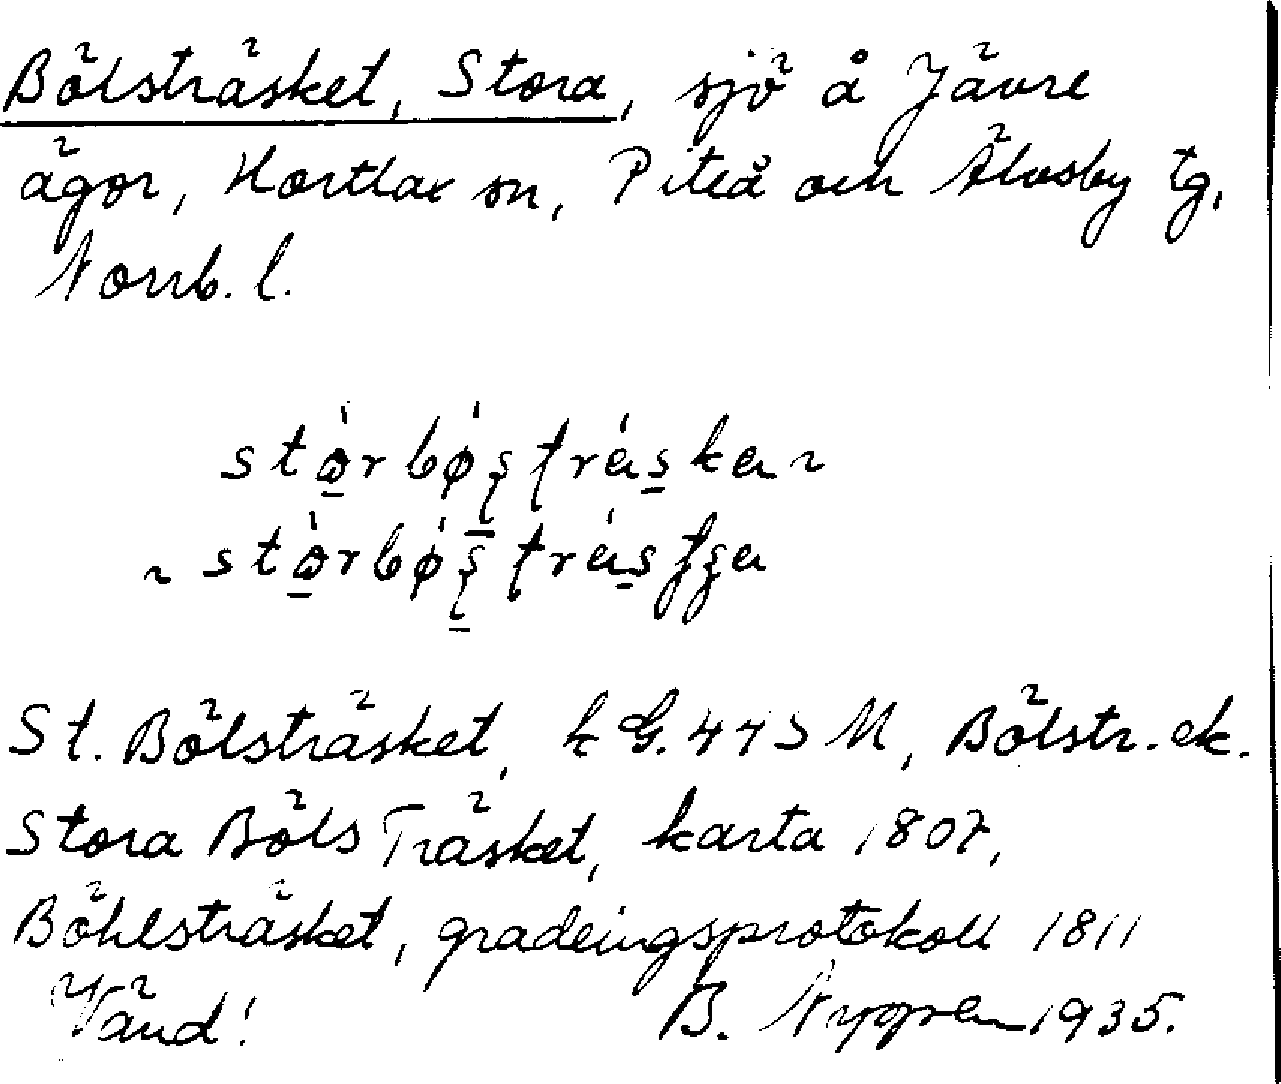 Bölsträsket, Stora, sjö å Jävre
ägor, Hortlax sn, Piteå och Älvsby tg,
Norrb. l.
St. Bölsträsket, k G. 445 M, Bölstr. ek.
Stora Böls Träsket, karta 1807,
Böhlsträsket, gradeingsprotokoll 1811
Vänd! B. Nygren 1935.